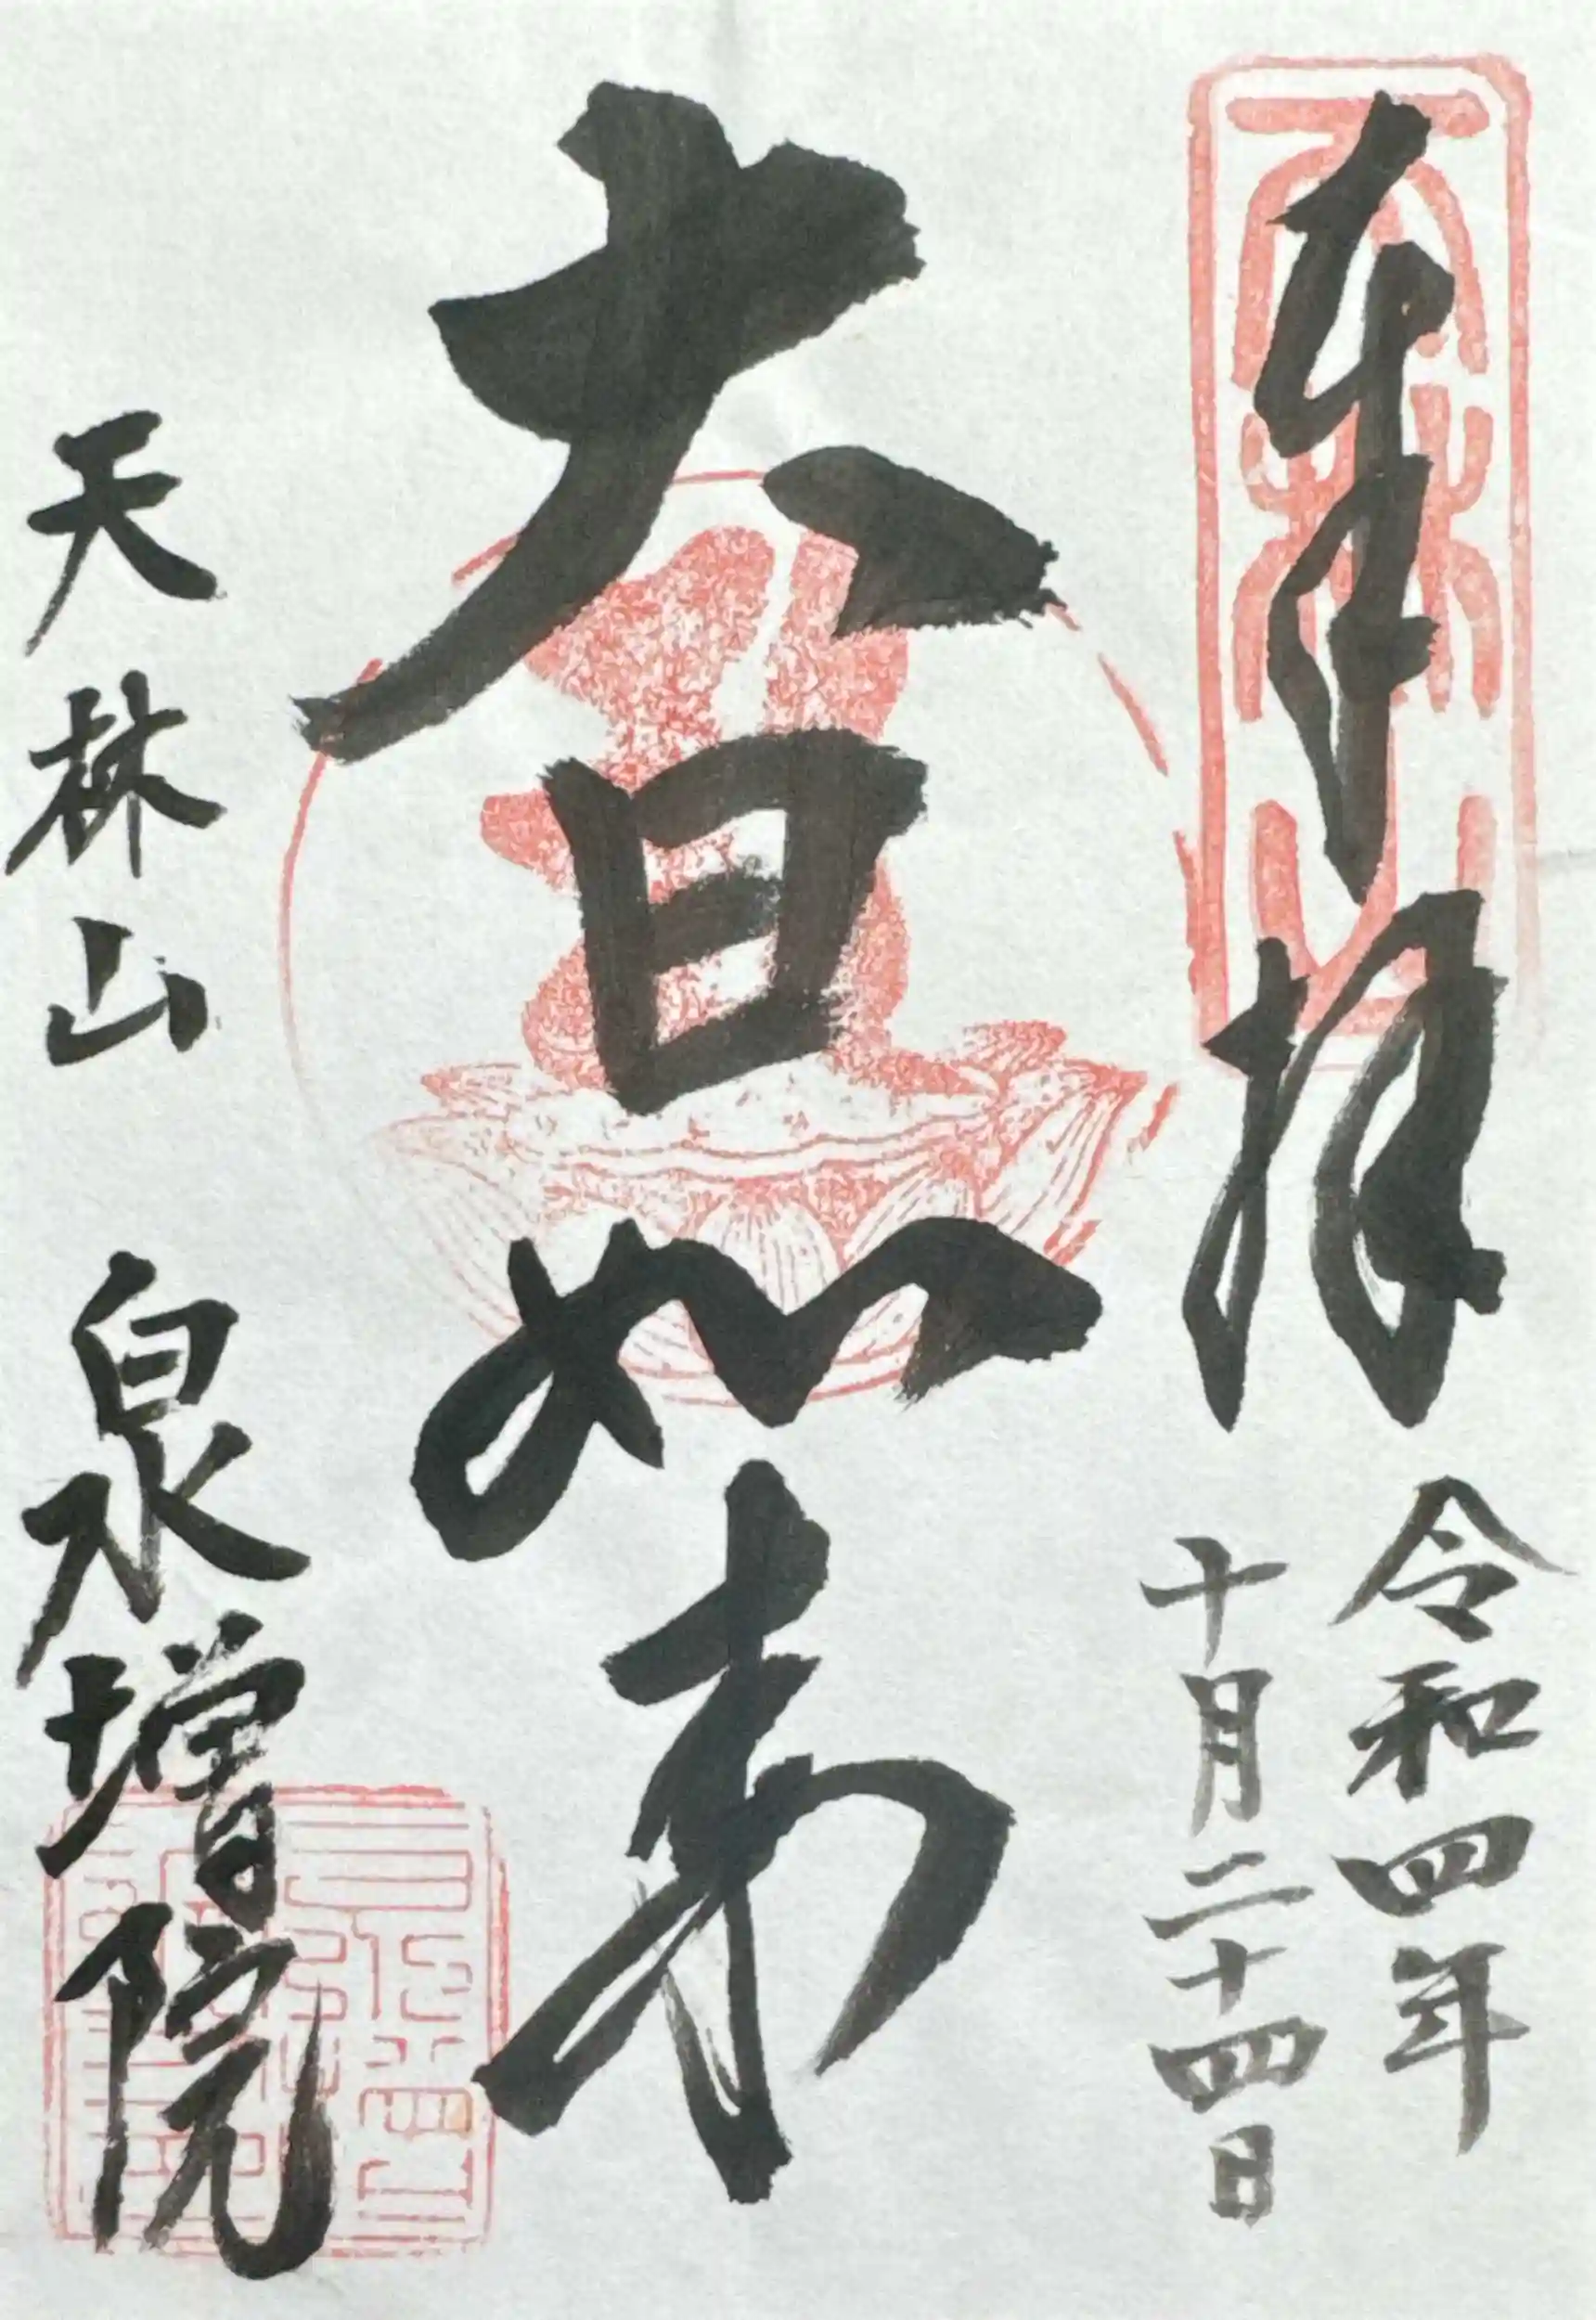 奉拝
令和四年
十月二十四日
大日如来
天林山
泉増院
天林山